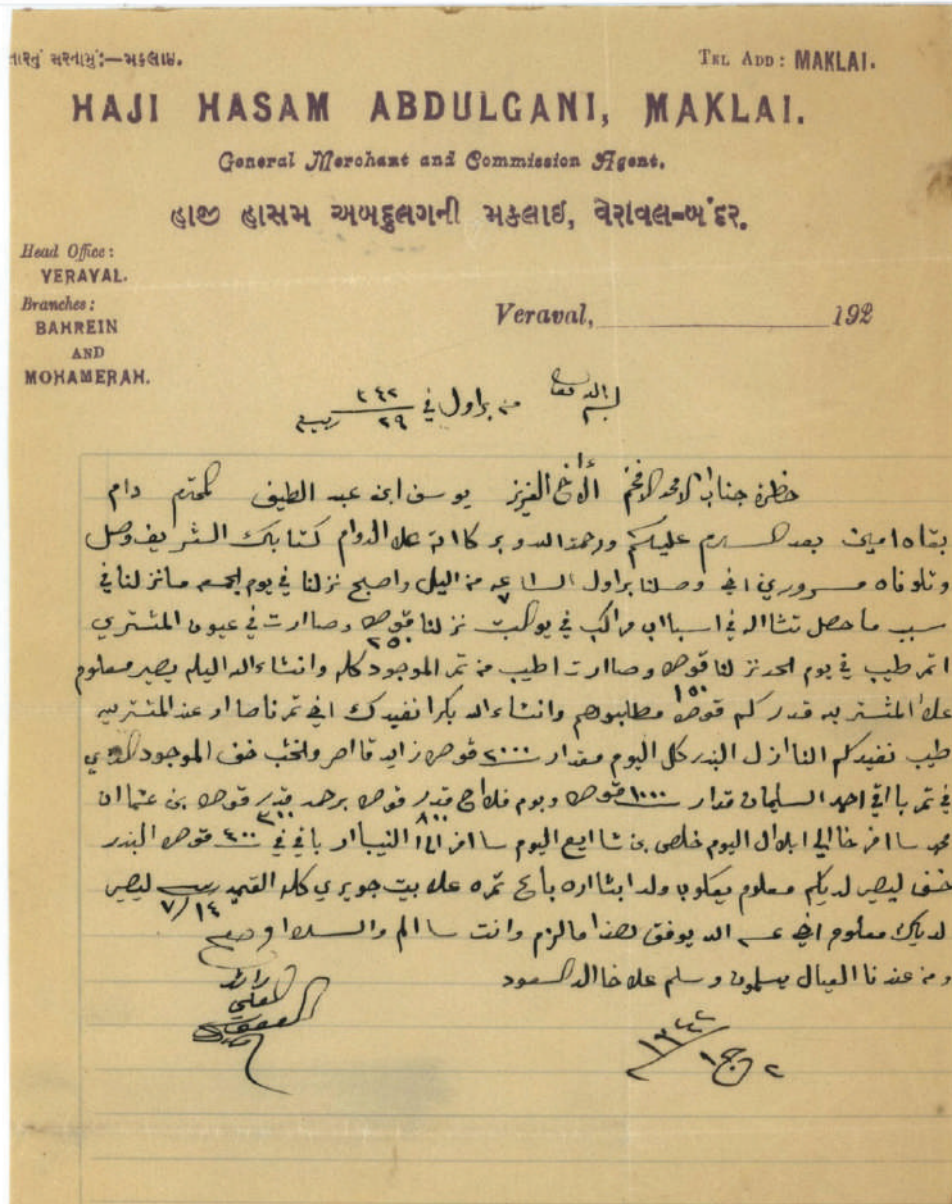 તારનું સરનામું:—મકલાઇ.
TEL ADD: MAKLAI.
HAJI HASAM ABDULGANI, MAKLAI.
General Merchant and Commission Agent.
હાજી હાસમ અબદુલગની મકલાઈ, વેરાવલ=બંદર.
Head Office:
VERAVAL.
Branches:
BAHREIN
AND
MOHAMERAH.
Veraval, 192
بسم الله تعالى
من براول في ٢٩ ٣٤٢
حظرة جناب الامجد الافخم الأخ العزيز يوسف ابن عبد الطيف المحترم دام
بقاه امين بعد السلام عليكم ورحمة الله وبركااته علا الدوام كتابك الشريف وصل
وصلنا براول الساعة ٧ من اليل واصبح نزلنا في يوم الجمعه مانزلنا في
سبب ماحصل في مراكب في نزلنا قوصره ٢٥٠ وصاارت في عيون المشتري
اتمر طيب في يوم الحد نزلنا قوصره ١٥٠ وصاارت اطيب من تمر الموجود كله وانشاءالله اليلم يصير معلوم
علا المشتريه قدر كم قوصره مطلبوهم وانشاءالله بكرا نفيدك اخي تمرنا صاار عند المشتريه
طيب نفيدكم الناازل البندر كل اليوم مقدار ٢٠٠٠ قوصره زايد قااصر والخشب خف الموجود الذي
في تمر بااقي احمد السليمان قدار ١٠٠٠ قوصره وبوم فلااح قدر ٨٠٠ قوصره برحمد قدر ٣٠٠ قوصره بن عثماان
محمد ساافر خاالي ابلاال اليوم خلص بن شاايع اليوم ساافر باقي في ٤٠٠ قوصره البندر
خف ليصير لديكم معلوم يعكوب ولد ابشااره باع تمره علا بيت جويري كله ١٤/٧ ليصير
لديك معلوم اخي عسى الله يوفق هذا مالزم وانت ساالم والسلاام
ومن عندنا العيال يسلمون وسلم علا خاالد السعود
٢ ج ١ ١٣٤٢